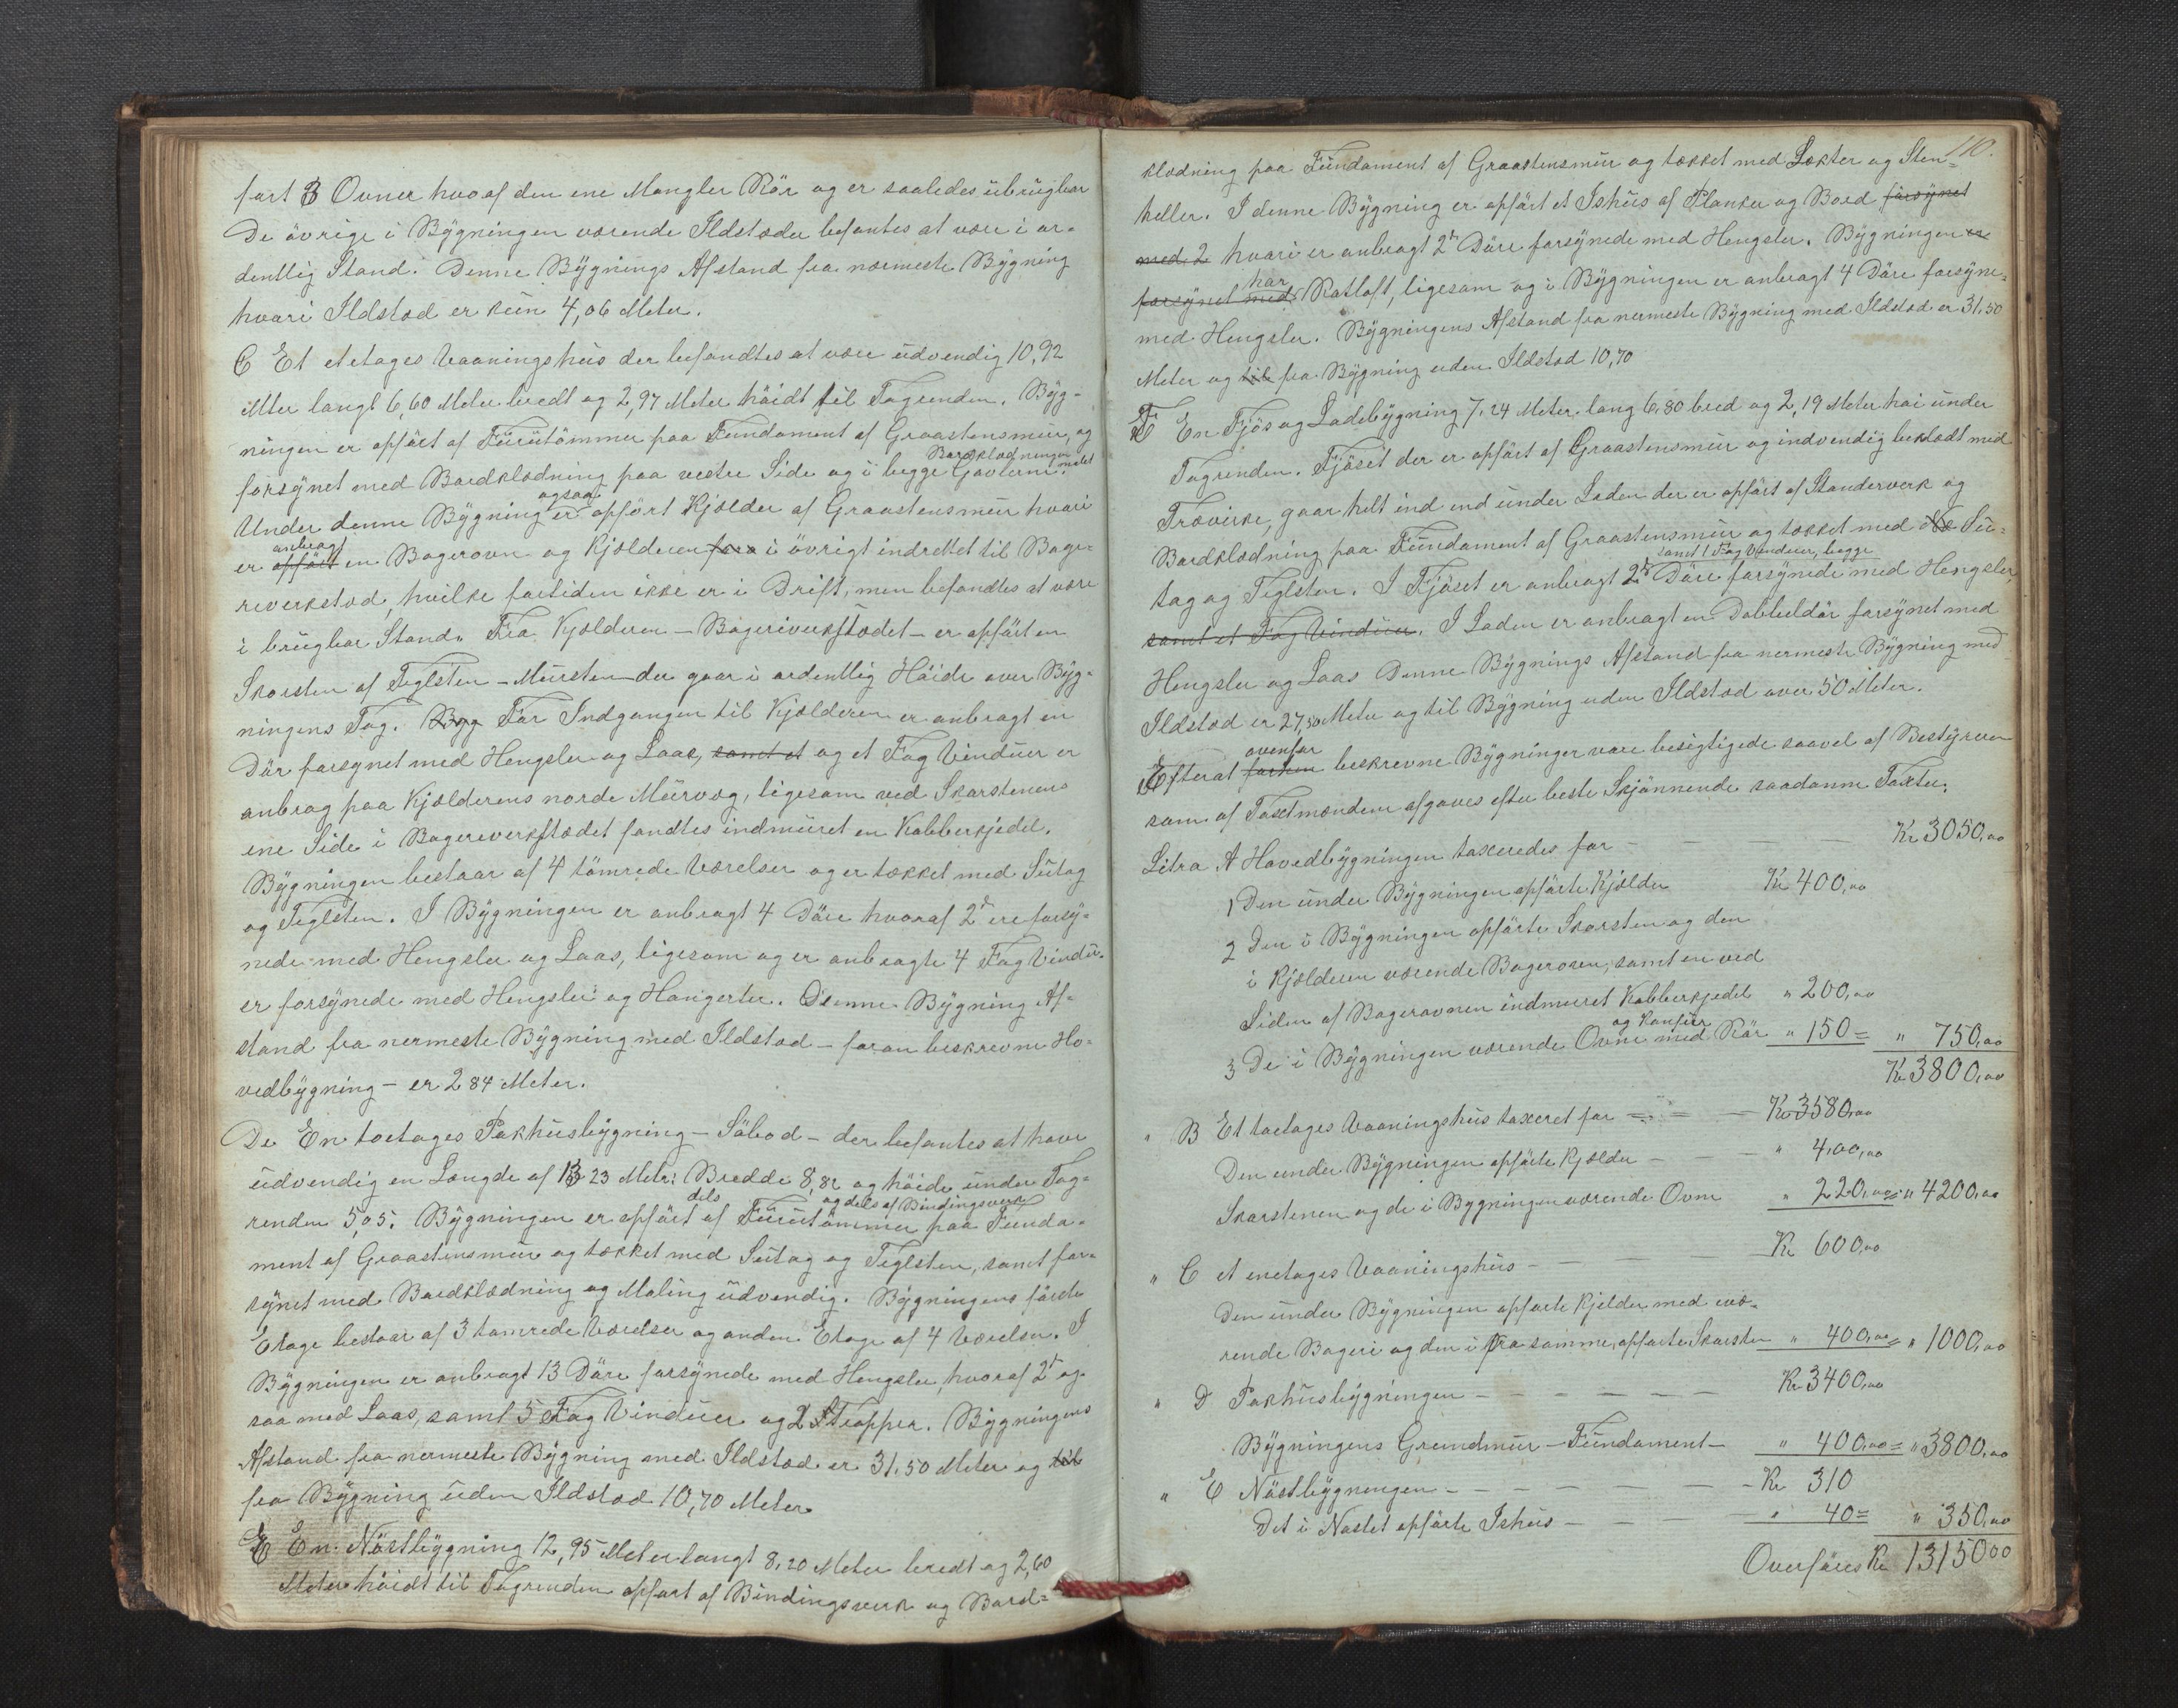 fört 3 Ovner hvoaf den ene Mangler Rör og er saaledes ubrugbar
De övrige i Bygningen værende Ildstæder befantes at være i or-
dentlig Stand. Denne Bygnings Afstand fra nærmeste Bygning
hvori Ildstæd er kun 4,06 Meter.
C Et etetages Vaaningshus der befandtes at være udvendig 10,92
Mter langt 6,60 Meter bredt og 2,97 Meter höidt til Tagrenden. Byg-
ningen er opfört af Furutömmer paa Fundament af Graastensmur, og
forsynet med Bordklædning paa vestre Side og i begge Gavlerne Bordklædningen malet
Under denne Bygning er ogsaa opfört Kjælder af Graastensmur hvori
er opfört anbragt en Bagerovn og Kjælderen fora i övrigt indrettet til Bage-
reverksted, hvilke fortiden ikke er i Drift, men befandtes at være
i brugbar Stand. Fra Kjælderen - Bageriverkstædet - er opfört en
Skorsten af Teglsten - Mursten - der gaar i ordentlig Höide over Byg-
ningens Tag. Bygg For Indgangen til Kjælderen er anbragt en
Dör forsynet med Hengsler og Laas, samt et og et Fag Vinduer er
anbrag paa Kjælderens nordre Murvæg, ligesom ved Skorstenens
ene Side i Bagereverkstædet fandtes indmuret en Kobberkjedel.
Bygningen bestaar af 4 tömrede Værelser og er tækket med Sutag
og Teglsten. I Bygningen er anbragt 4 Döre hvoraf 2de ere forsy-
nede med Hengsler og Laas, ligesom og er anbragte 4 Fag Vindu-
er forsynede med Hengsler og Hangerter. Denne Bygning Af-
stand fra nermeste Bygning med Ildstæd - foran beskrevne Ho-
vedbygning - er 2 84 Meter.
De En toetages Pakhusbygning - Söbod - der befantes at have
udvendig en Længde af 13 23 Metr: Bredde 8,82 og höide under Tag-
renden 5,05. Bygningen er opfört dels af Furutömmer og dels af Bindingsverk paa Funda-
ment af Graastensmur og tækket med Sutag og Teglsten, samt for-
synet med Bordklædning og Maling udvendig. Bygningens förste
Etage bestaar af 3 tömrede Værelser og anden Etage af 4 Værelser. I
Bygningen er anbragt 13 Döre forsynede med Hengsler, hvoraf 2de og-
saa med Laas, samt 5 Fag Vinduer og 2 Trapper. Bygningens
Afstand fra nermeste Bygning med Ildstæd er 31.50 Meter og til
fra Bygning uden Ildstæd 10,70 Meter.
E En Nöstbygning 12,95 Meter langt 8.20 Meter bredt og 2,60
Meter höidt til Tagrenden opfört af Bindingsverk og Bord-
110.
klædning paa Fundament af Graastensmur og tækket med Lekter og Sten-
heller. I denne Bygning er opfört et Ishus af Planker og Bord forsynet
med 2 hvori er anbragt 2de Döre forsynede med Hengsler. Bygningen er
forsynet med har Ratloft, ligesom og i Bygningen er anbragt 4 Döre forsyne-
med Hengsler. Bygningens Afstand fra nermeste Bygning med Ildstæd er 31.50
Meter og til fra Bygning uden Ildstæd 10,70
F En Fjös og Ladebygning 7.24 Meter lang 6.80 bred og 2,19 Meter höi under
Tagrenden. Fjöset der er opfört af Graastensmur og indvendig beklædt med
Trævirke, gaar helt ind ind under Laden der er opfört af Standerverk og
Bordklædning paa Fundament af Graastensmur og tækket med Su-
tag og Teglsten. I Fjöset er anbragt 2de Döre samt 1 Fag Vinduer, begge forsynede med Hengsler,
samt et Fag Vinduer. I Laden er anbragt en Dobbeldör forsynet med
Hengsler og Laas Denne Bygnings Afstand fra nermeste Bygning med
Ildstæd er 27,50 Meter og til Bygning uden Ildstæd over 50 Meter.
Efterat forhen ovenfor beskrevne Bygninger vare besigtigede saavel af Bestyreren
som af Taxtmændene afgaves efter beste Skjönnende saadanne Taxter.
Litra A Hovedbygningen taxeredes for - - - - Kr 3050,00
1 Den under Bygningen opförte Kjælder Kr 400,00
2 Den i Bygningen opförte Skorsten og den
i Kjælderen værende Bagerovn, samt en ved
Siden af Bagerovnen indmuret Kobberkjedel " 200,00
3 De i Bygningen værende Ovne og Komfur med Rör " 150= " 750,00
Kr 3800,00
" B Et toetages Vaaningshus taxeret for - - - Kr 3580,00
Den under Bygningen opförte Kjælder - - - " 400,00
Skorstenen og de i Bygningen værende Ovne " 220,00= " 4200,00
" C et enetages Vaaningshus - - - - Kr 600,00
Den under Bygningen opförte Kjelder med væ-
rende Bageri og den i fra samme opförte Skorsten " 400,00= " 1000,00
" D Pakhusbygningen - - - - - - Kr 3400,00
Bygningens Grundmur - Fundament - " 400,00= " 3800,00
" E Nöstbygningen - - - - - - Kr 310
Det i Nöstet opförte Ishus - - - - " 40= " 350,00
Overföres Kr 13150 00